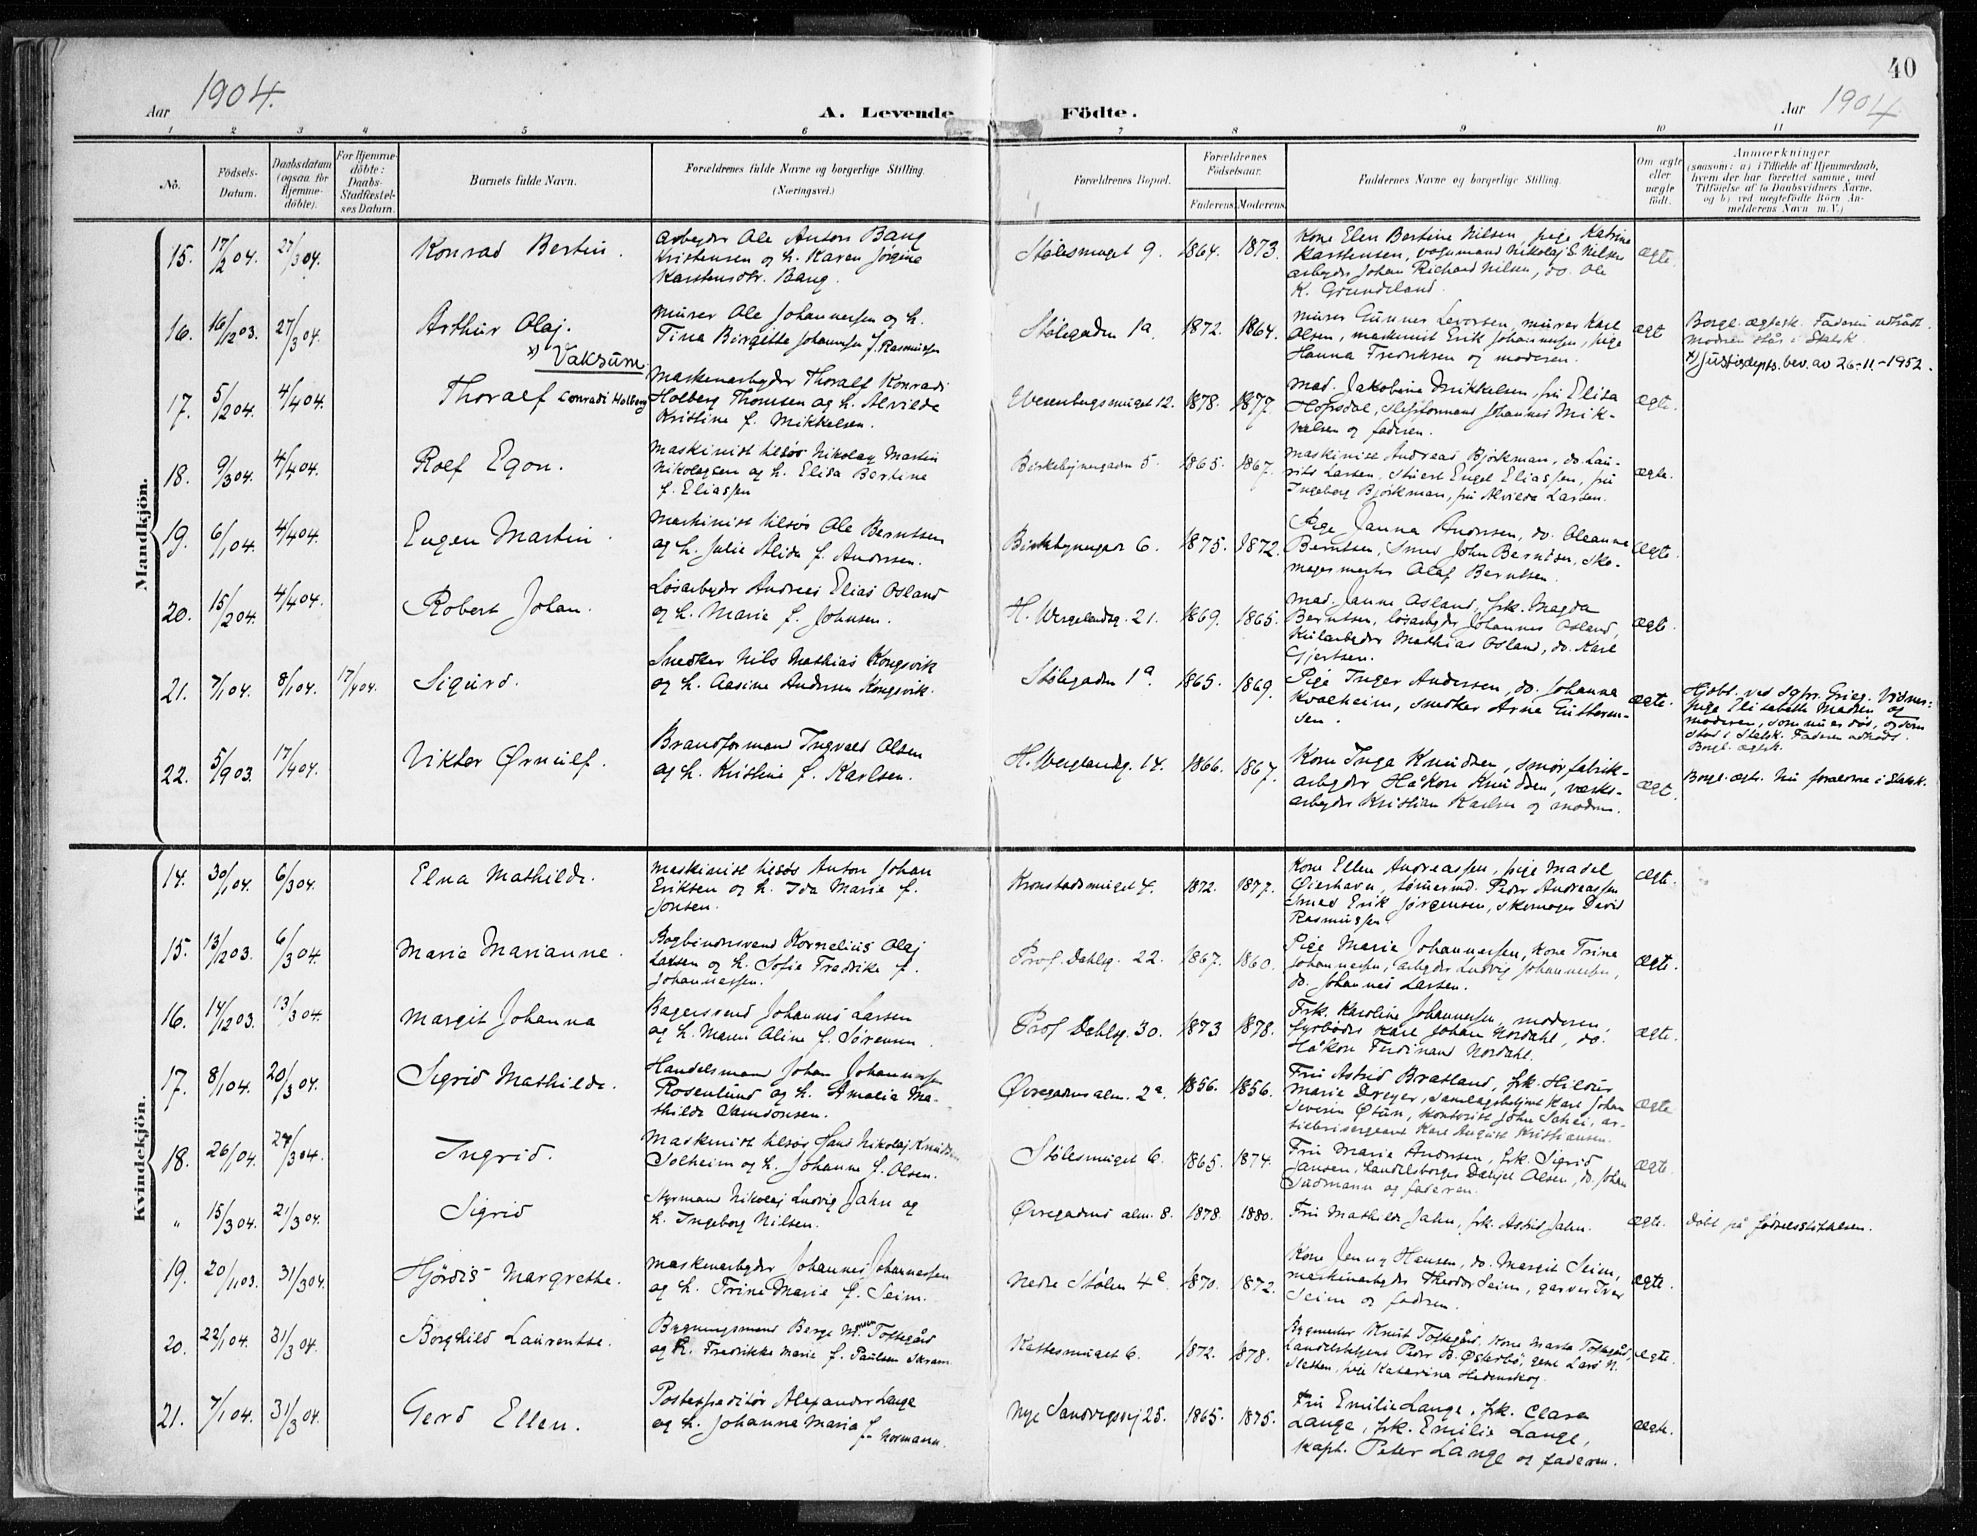 40
Aar 1904.
A. Levende Födte.
Aar 1904
1 2 3 4 5 6 7 8 9 10 11
No.
Födsels-Datum.
Daabsdatum (ogsaa for Hjemme-döbte).
For Hjemme-döbte: Daabs-Stadfæstel-ses Datum.
Barnets fulde Navn.
Forældrenes fulde Navne og borgerlige Stilling. (Næringsvei.)
Forældrenes Bopæl.
Forældrenes Födselsaar.
Faderens Moderens
Faddernes Navne og borgerlige Stilling.
Om ægte eller uægte födt.
Anmærkninger
(saasom: a) i Tilfælde af Hjemmedaab, hvem der har forrettet samme, med Tilföielse af to Daabsvidners Navne, og b) ved uægtefödte Börn Anmelderens Navn m. V.)
Mandkjön.
15. 17/2 04. 27/3 04. Konrad Bertin.
arbeyder Ole Anton Bang
Kristensen og h. Karen Jørgine
Karstensdtr. Bang.
Stølesmuget 9. 1864. 1873.
Kone Elen Bertine Nilsen, pige Katrine
Karstensen, vognmand Nikolaj E. Nilsen
arbeyder Johan Richard Nilsen, do. Ole
K. Grundeland.
ægte.
16. 16/12 03. 27/3 04. Arthur Olaj.
x) Vaksum
murer Ole Johannessen og h.
Tina Birgitte Johannessen f. Rasmussen
Stølegaden 1a. 1872. 1864.
murer Gunner Levorsen, murer Karl
Olsen, maskinist Erik Johannessen, pige
Hanna Fredriksen og moderen.
ægt
Borgl. ægtesk. Faderen udtrådt.
moderen står i Statsk.
x) Justisdepts. bev. av 26-11-1952.
17. 5/2 04. 4/4 04. Thoralf Conradi Holberg
Maskinarbeyder Thoralf Konradi
Holberg Thomsen og h. Alvilde
Kristine f. Mikkelsen.
Wesenbergsmuget 12. 1878. 1877.
mad. Jakobine Mikkelsen, frii Elisa
Hopsdal, Johannes Mik-
kelsen og faderen.
ægte.
18. 9/3 04. 4/4 04. Rolf Egon.
maskinist tilsøs Nikolay Martin
Nikolaysen og h. Elisa Bertine
f. Eliassen
Birkebejnergaden 5. 1865. 1867.
maskinist Andreas Bjørkman, do. Lau-
rits Larsen, Stuert Engel Eliassen, frii
Ingeborg Bjørkman, frii Alvilde Larsen.
ægte.
19. 6/1 04. 4/4 04. Eugen Martin.
Maskinist tilsøs Ole Berntsen
og h. Julie Alida f. Andersen.
Birkebejnergaden 6. 1875. 1872.
Pige Janna Andersen, do. Oleanna
Berntsen, Smed John Berntsen, sko-
magermester Olaf Berntsen.
ægte.
20. 15/2 04. 4/4 04. Robert Johan.
Løsarbeyder Andreas Elias Osland
og h. Marie f. Johnsen.
H. Wergelandsg. 21. 1869. 1865.
mad. Janna Osland, frk. Magda
Berntsen, løsarbeyder Johannes Osland,
Kularbeyder Mathias Osland, do. Karl
Gjertsen.
ægte.
21. 7/1 04. 8/1 04. 17/4 04. Sigurd.
Snedker Nils Mathias Kongsvik
og h. Aasine Andersen Kongsvik.
Stølegaden 1a 1865. 1869.
Pige Inger Andersen, do. Johanna
Kvalheim, snedker Arne Guttorm-
sen.
ægte.
Hjdbt. ved Sgpr. Grieg. Vidner:
pige Elisabeth Madsen og
moderen, som nu er død, og som
stod i Statsk. Faderen udtrådt.
Borgl. ægtsk.
22. 5/9 03. 17/4 04. Viktor Ørnulf.
Brandformand Ingvald Olsen
og h. Kristine f. Karlsen.
H. Wergelandsg. 14. 1866. 1867.
Kone Inga Knudsen, smørfabrik-
arbeyder Håkon Knudsen, værks-
arbeyder Kristian Karlsen og moderen.
ægt.
Borgl. ægte. Nu forældrene i Statsk.
Kvindekjön.
14. 30/1 04. 6/3 04. Elna Mathilde.
maskinist tilsøs Anton Johan
Eriksen og h. Ida Marie f.
Jonsen.
Kronstadsmuget 4. 1872. 1877.
Kone Ellen Andreassen, pige Madel
Øiershavn, tømermd. Peder Andreassen
Smed Erik Jørgensen, skomager David
Rasmussen.
ægte.
15. 13/12 03. 6/3 04. Marie Marianne.
Bogbindersvend Kornelius Olaj
Larsen og h. Sofie Fredrike f.
Johannessen.
Prof. Dahlsg. 22. 1867. 1860.
Pige Marie Johannessen, Kone Trine
Johannessen, arbeyder Ludvig Johannessen,
do. Johannes Larsen.
ægte.
16. 14/12 03. 13/3 04. Margit Johanna
Bagersvend Johannes Larsen
og h. Maren Aline f. Sørensen.
Prof Dahlsg. 30. 1873 1878.
Frk. Karoline Johannessen, moderen,
fyrbøder Karl Johan Nordahl, do.
Håkon Ferdinand Nordahl.
ægte.
17. 8/1 04. 20/3 04. Sigrid Mathilde.
Handelsmand Johan Johannessen
Rosenlund og h. Amalie Ma-
thilde Samsonsen.
Øvregadens alm. 2a. 1856. 1856.
Frii Astrid Bratland, frk. Hildur
Marie Dreyer, Karl Johan
Severin Østun, kontorist John Schei, ar-
tillerisergeant Karl August Kristiansen.
ægte
18. 26/1 04. 27/3 04. Ingrid.
Maskinist tilsøs Hans Nikolaj Knudsen
Solheim og h. Johanne f. Olsen.
Stølesmuget 6. 1865. 1874.
Frii Marie Andersen, frk. Sigrid
Jansen, handelsborger Daniel Olsen, do. Johan
Sudmann og faderen.
ægte.
" 15/3 04. 21/3 04. Sigrid
Styrmand Nikolaj Ludvig Jahn og
h. Ingeborg Nilsen.
Øvregadens alm. 8. 1878. 1880.
Frii Mathilde Jahn, frk. Astrid Jahn.
ægte.
Døbt på fødselsstiftelsen.
19. 20/11 03. 31/3 04. Hjördis Margrethe.
maskinarbeyder Johannes Johannessen
og h. Trine Marie f. Seim.
Nedre Stølen 4c. 1870. 1872.
Kone Jenny Hansen, do. Margit Seim,
maskinarbeyder Theodor Seim, garver Iver
Seim og faderen.
ægte.
20. 22/1 04. 31/3 04. Borghild Laurentse.
Bygningsmand Berge Monsen Toftegård
og h. Fredrikke Marie f. Paulsen Skram.
Kattesmuget 6. 1872. 1878.
Bygmester Knut Toftegård, Kone Marta Toftegård,
handelsbetjent Peder B. Østerbø, gent Lars N.
Sletten, pige Katarina Hedenskog.
ægte.
21. 7/1 04. 31/3 04. Gerd Ellen.
Postexpeditör Alexander Lange
og h. Johanne Maria f. Normann.
Nye Sandvigsvej 25. 1865. 1875.
Frii Emilie Lange, frk. Clara
Lange, frk. Emilie Lange,
kapt. Peter Lange og faderen.
ægte.